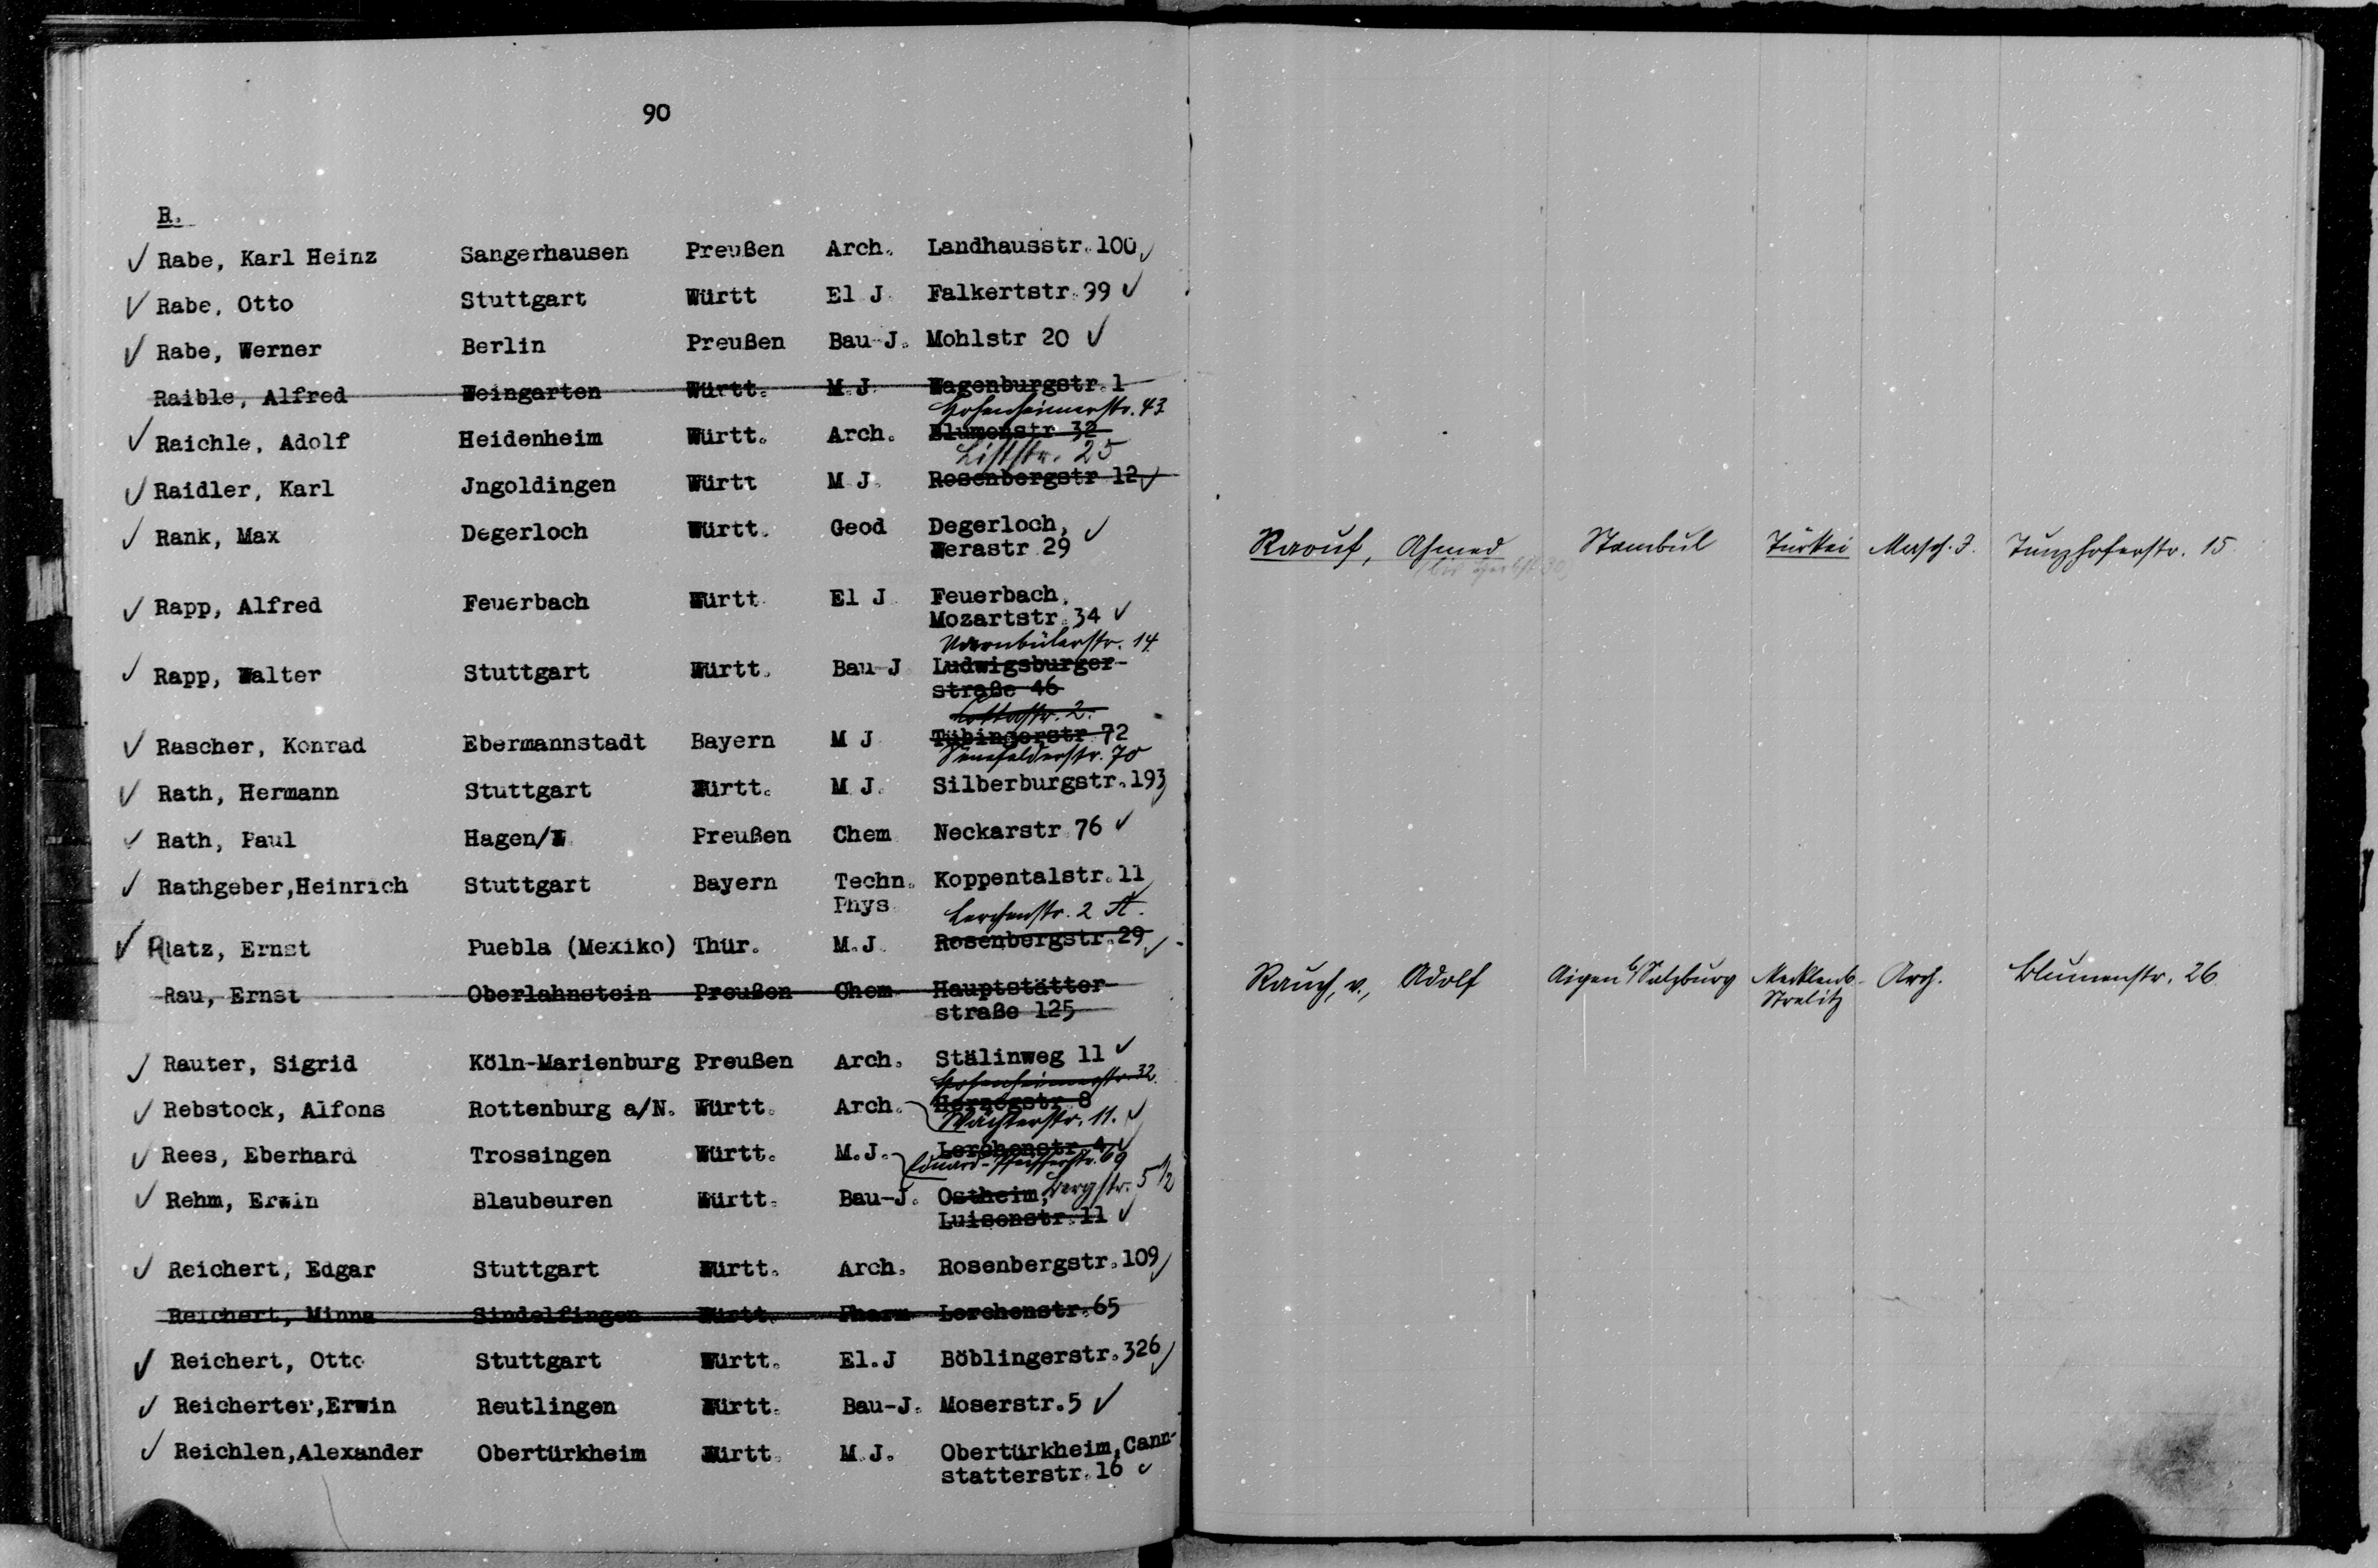 90
R.
✓ Rabe, Karl Heinz Sangerhausen Preußen Arch. Landhausstr. 100 ✓
✓ Rabe, Otto Stuttgart Württ El J. Falkertstr. 99 ✓
✓ Rabe, Werner Berlin Preußen Bau-J. Mohlstr 20 ✓
Raible, Alfred Weingarten Württ. M.J. Wagenburgstr. 1
Hohenheimerstr. 43
✓ Raichle, Adolf Heidenheim Württ. Arch. Blumenstr 32
Liststr. 25
✓ Raidler, Karl Jngoldingen Württ M J. Rosenbergstr 12 ✓
✓ Rank, Max Degerloch Württ. Geod Degerloch, ✓
Werastr 29
✓ Rapp, Alfred Feuerbach Württ. El J. Feuerbach,
Mozartstr. 34 ✓
Varnbülerstr. 14
✓ Rapp, Walter Stuttgart Württ. Bau-J Ludwigsburger-
straße 46
Cottastr. 2.
✓ Rascher, Konrad Ebermannstadt Bayern M J Tübingerstr 72
Senefelderstr. 70
✓ Rath, Hermann Stuttgart Württ. M J. Silberburgstr. 193 ✓
✓ Rath, Paul Hagen/W Preußen Chem Neckarstr 76 ✓
✓ Rathgeber,Heinrich Stuttgart Bayern Techn. Koppentalstr. 11
Phys
Lerchenstr. 2 A.
✓ Ratz, Ernst Puebla (Mexiko) Thür. M.J. Rosenbergstr. 29 ✓
Rau, Ernst Oberlahnstein Preußen Chem Hauptstätter-
straße 125
✓ Rauter, Sigrid Köln-Marienburg Preußen Arch. Stälinweg 11 ✓
Hohenheimerstr. 32.
✓ Rebstock, Alfons Rottenburg a/N. Württ. Arch. Herzogstr 8
Wächterstr. 11. ✓
✓ Rees, Eberhard Trossingen Württ. M.J. Lerchenstr. 4 ✓
Eduard-Pfeifferstr. 69
✓ Rehm, Erwin Blaubeuren Württ. Bau-J. Ostheim, Bergstr. 5 1/2
Luisenstr. 11 ✓
✓ Reichert, Edgar Stuttgart Württ. Arch. Rosenbergstr. 109 ✓
Reichert, Minna Sindelfingen Württ. Pharm Lerchenstr. 65
✓ Reichert, Otto Stuttgart Württ. El.J Böblingerstr. 326 ✓
✓ Reicherter,Erwin Reutlingen Württ. Bau-J. Moserstr. 5 ✓
✓ Reichlen,Alexander Obertürkheim Württ. M.J. Obertürkheim, Cann-
statterstr. 16 ✓
Raouf, Ahmed Stambul Türkei Masch. J. Tunzhoferstr. 15
Rauch, v., Adolf Aigen b/Salzburg Mecklenb.- Arch. Blumenstr. 26
Strelitz